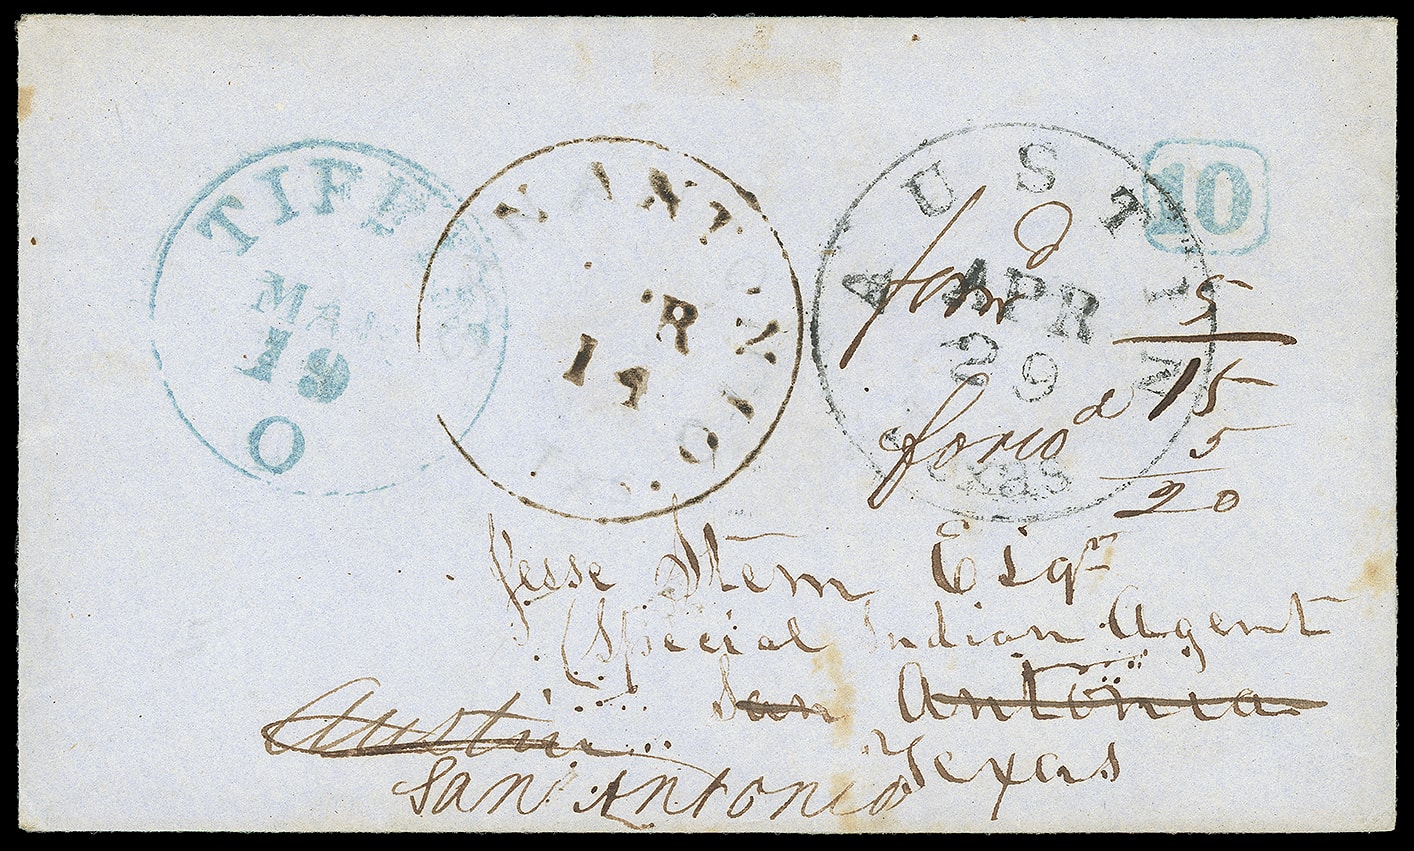 TIFFIN
MAR
19
O
N ANTONIO
R
17
AUSTIN
APR
29
Texas
10
forwd 5
forwd 15
5
20
Jesse Stem Esqr
Special Indian Agent
San Antonia
Texas
Austin
San Antonio